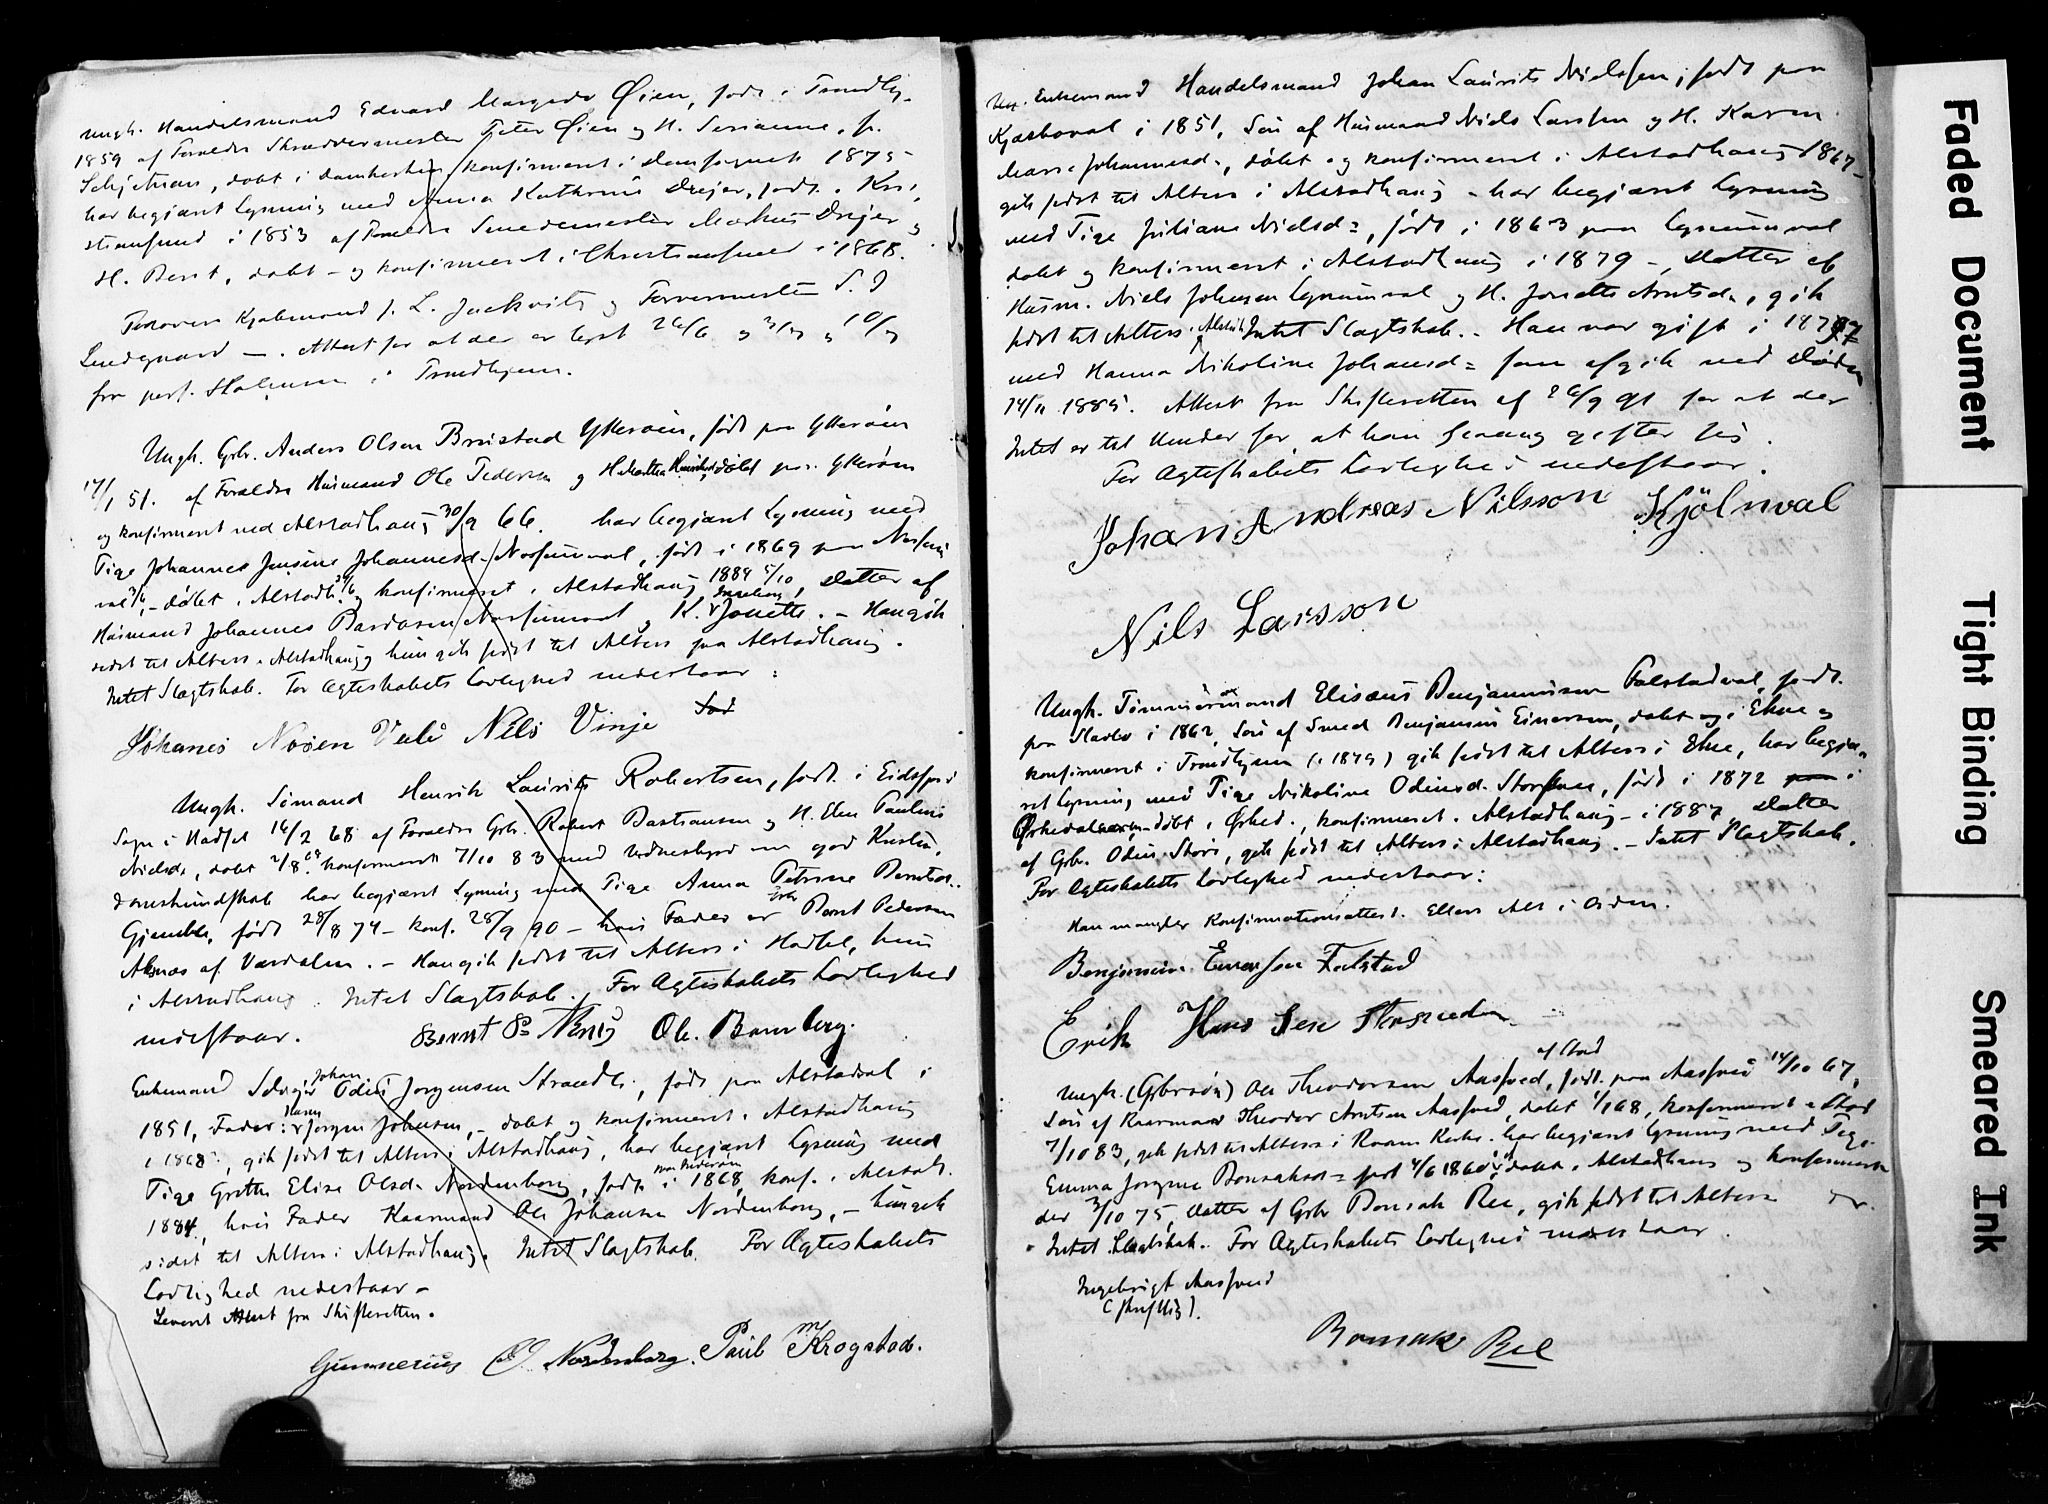 Ungk. Handelsmand Edvard Margido Øien, født i Trondhj.
1859 af Forældre Skræddermester Peter Øien og H. Serianne, f.
døbt i Domkirken, konfirmeret i Domsognet 1875
har begjært Lysning med Anna Kathrine Drejer, født i Kri-
stiansund i 1853 af Forældre Smedemester Markus Drejer og
H. Berit, døbt - og konfirmeret i Christiansund i 1868.
Forlovere Kjøbmand J. L. og Farvermester S. J
Lundgaard —. Attest for at der er lyst 26/6 og 3/7 og 10/7
fra i Trondhjem.
Ungk. Gbr. Anders Olsen Brustad Ytterøen, født paa Ytterøen
17/1 51. af Forældre Husmand Ole Pedersen og H. Martha døbt paa Ytterøen
og konfirmeret ved Alstadhaug 30/9 66. har begjært Lysning med
Pige Johannes Jensine Johannesd. født i 1869 paa
døbt i Alstadh. og konfirmeret i Alstadhaug 1884 5/10, Datter af
Husmand Johannes Bardosen og K. Ingeborg Jonette. - Han gik
sidst til Alters i Alstadhaug og hun gik sidst til Alters paa Alstadhaug.
Intet Slægtskab. For Ægteskabets Lovlighed nedestaar:
Johanes Nosen Nils Vinje
Ungk. Sømand Henrik Laurits Robertsen, født i Eidsfjord
Sogn i Hadsel 16/2 68 af Forældre Gbr. Robert Bastiansen og H. Elen Pauline
Nielsd., døbt 2/8 68 konfirmeret 7/10 83 med Vidnesbyrd om god Kristen-
domskundskab har begjært Lysning med Pige Anna Petrine Berntsd.
født 28/8 74 - konf. 28/9 90 - hvis Fader er Gbr. Bernt Pedersen
af Værdalen. - Han gik sidst til Alters i Hadsel, hun
i Alstadhaug. Intet Slægtskab. For Ægteskabets Lovlighed
nedestaar. Bernt P. Ole Bamberg.
Enkemand Johan Odin Jørgensen Strandh., født paa Alstadval i
1851, Fader: Jørgen Johansen, - døbt og konfirmeret i Alstadhaug
i 1868, gik sidst til Alters i Alstadhaug, har begjært Lysning med
Pige Grethe Elise Olsd. Nordenborg, født paa Inderøen i 1868, konf. i Alstadh.
1884, hvis Fader Kaarmand Ole Johansen Nordenborg, - hun gik
sidst til Alters i Alstadhaug. Intet Slægtskab. For Ægteskabets
Lovlighed nedestaar -
Leveret Attest fra Skifteretten.
Gunnerius O. Nordenborg. Paul M Krogstad.
Ung. Enkemand Handelsmand Johan Laurits Nielssen, født paa
i 1851, Søn af Husmand Niels Larssen og H. Karen
Marie Johannesd., døbt og konfirmeret i Alstadhaug 1867 -
gik sidst til Alters i Alstadhaug - har begjært Lysning
med Pige Juliane Nielsd., født i 1863 paa
døbt og konfirmeret i Alstadhaug i 1879 -, Datter af
Husm. Niels Johnsen og H. Jonette Arntsd., gik
sidst til Alters i Alstadh. Intet Slægtskab. - Han var gift i 1877
med Hanna Nikoline Johansd. som afgik ved Døden
14/11 1885. Attest fra Skifteretten af 26/9 91 for at der
Intet er til Hinder for at han paany gifter sig.
For Ægteskabets Lovlighed nedestaar.
Johan Andreas Nilsson Kjölnval
Nils Larsson
Ungk. Tømmermand Eliseus Benjaminsen Falstadval, født
paa i 1862, Søn af Smed Benjamin Einersen, døbt i Ekne og
konfirmeret i Trondhjem (i 1879) gik sidst til Alters i Ekne, har begjæ-
ret Lysning med Pige Nikoline Odinsd. født i 1872 paa i
Ørkedalen - døbt i Ørked., konfirmeret i Alstadhaug - i 1887, Datter
af Gbr. Odin gik sidst til Alters i Alstadhaug. - Intet Slægtskab.
For Ægteskabets Lovlighed nedestaar:
Han mangler Konfirmationsattest. Ellers Alt i Orden.
Benjamin Einersen Falstad
Erik Hans
Ungk. (Gbrsøn) Ole Theodorsen Aasved, af Stod født paa Aasved 14/10 67,
Søn af Kaarmand Theodor Arntsen Aasved, døbt 1/1 68, konfirmeret i Stod
7/10 83, gik sidst til Alters i Kirke. har begjært Lysning med Pige
Emma Jørgine Bonsaksd. født 4/6 1860, døbt i Alstadhaug og konfirmeret
der 3/10 75, Datter af Gbr. Bonsak Ree, gik sidst til Alters der.
Intet Slægtskab. For Ægteskabets Lovlighed nedestaar.
Ingebrigt Aasved
(skriftlig).
Bonsak Ree
Faded Document
Tight Binding
Smeared Ink